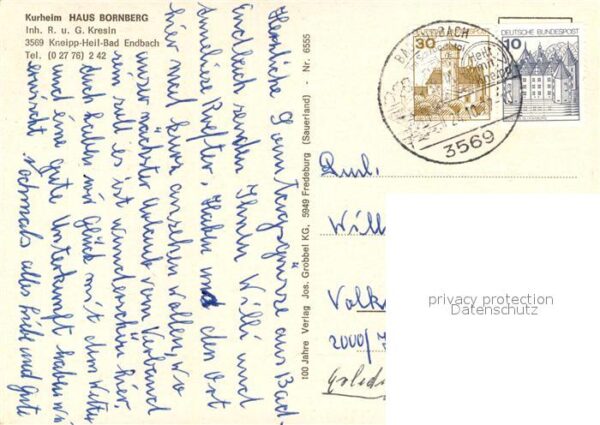 Kurheim HAUS BORNBERG
Inh. R. u. G. Kresin
3569 Kneipp-Heil-Bad Endbach
Tel. (0 27 76) 2 42
Herzliche Sonntagsgrüsse aus Bad-
endbach senden Ihnen Willi und
Anneliese Küster. Haben uns den Ort
hier mal kurz ansehen wollen, wo
unser nächster Urlaub vom Verband
sein soll es ist wunderschön hier.
Auch haben wir Glück mit dem Wetter
und eine gute Unterkunft haben wir
erwischt. nochmals alles Liebe und Gute
100 Jahre Verlag Jos. Grobbel KG, 5949 Fredeburg (Sauerland) · Nr. 6555
30
10
DEUTSCHE BUNDESPOST
BAD ENDBACH
3569
Will
Volk
2000/
privacy protection
Datenschutz